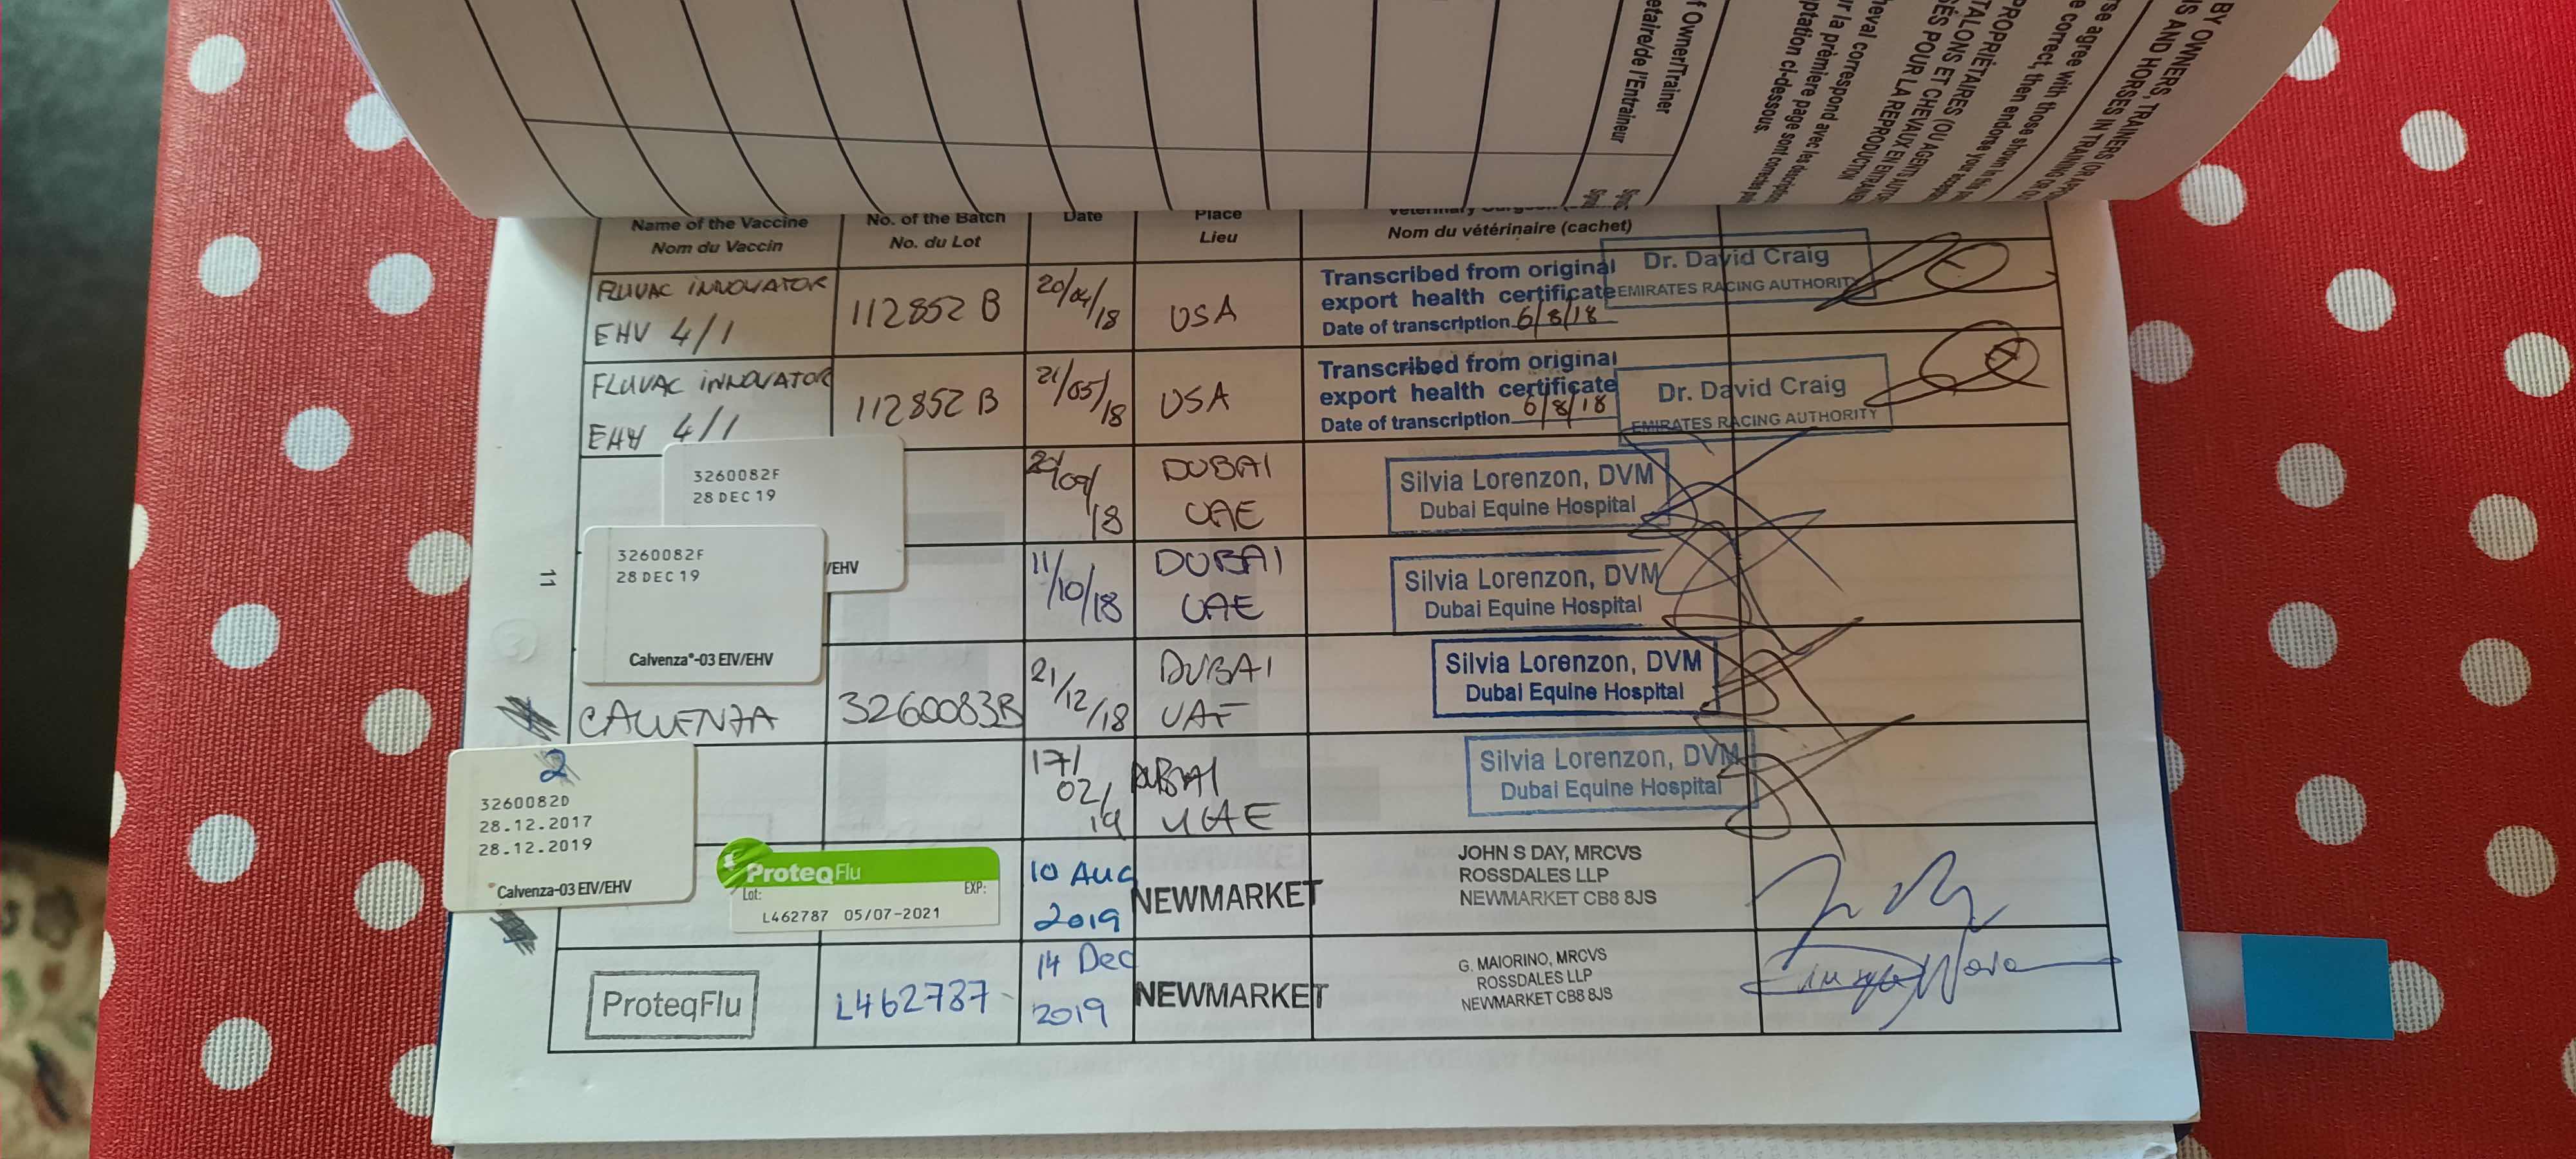 f Owner/Trainer
etaire/de l'Entraineur
BY OWNERS, TRAINERS
S AND HORSES IN TRAINING
rse agree with those shown
e correct, then endorse
PROPRIÉTAIRES (OU AGENTS
TALONS ET CHEVAUX EN
ÉS POUR LA REPRODUCTION
heval correspond avec les
ur la première page sont correctes
ptation ci-dessous.
Name of the Vaccine
Nom du Vaccin
No. of the Batch
No. du Lot
Date
Place
Lieu
Veterinary Surgeon
Nom du vétérinaire (cachet)
FLUVAC INNOVATOR
EHV 4/1
112852 B
20/04/18
USA
Transcribed from original
export health certificate
Date of transcription 6/8/18
Dr. David Craig
EMIRATES RACING AUTHORITY
FLUVAC INNOVATOR
EHV 4/1
112852 B
21/05/18
USA
Transcribed from original
export health certificate
Date of transcription 6/8/18
Dr. David Craig
EMIRATES RACING AUTHORITY
3260082F
28 DEC 19
/EHV
/09/18
DUBAI
UAE
Silvia Lorenzon, DVM
Dubai Equine Hospital
11
3260082F
28 DEC 19
Calvenza®-03 EIV/EHV
11/10/18
DUBAI
UAE
Silvia Lorenzon, DVM
Dubai Equine Hospital
CALVENZA
3260083B
21/12/18
DUBAI
UAE
Silvia Lorenzon, DVM
Dubai Equine Hospital
2
3260082D
28.12.2017
28.12.2019
Calvenza-03 EIV/EHV
17/02/19
DUBAI
UAE
Silvia Lorenzon, DVM
Dubai Equine Hospital
ProteqFlu
Lot: EXP:
L462787 05/07-2021
10 Aug
2019
NEWMARKET
JOHN S DAY, MRCVS
ROSSDALES LLP
NEWMARKET CB8 8JS
ProteqFlu
L462787
14 Dec
2019
NEWMARKET
G. MAIORINO, MRCVS
ROSSDALES LLP
NEWMARKET CB8 8JS